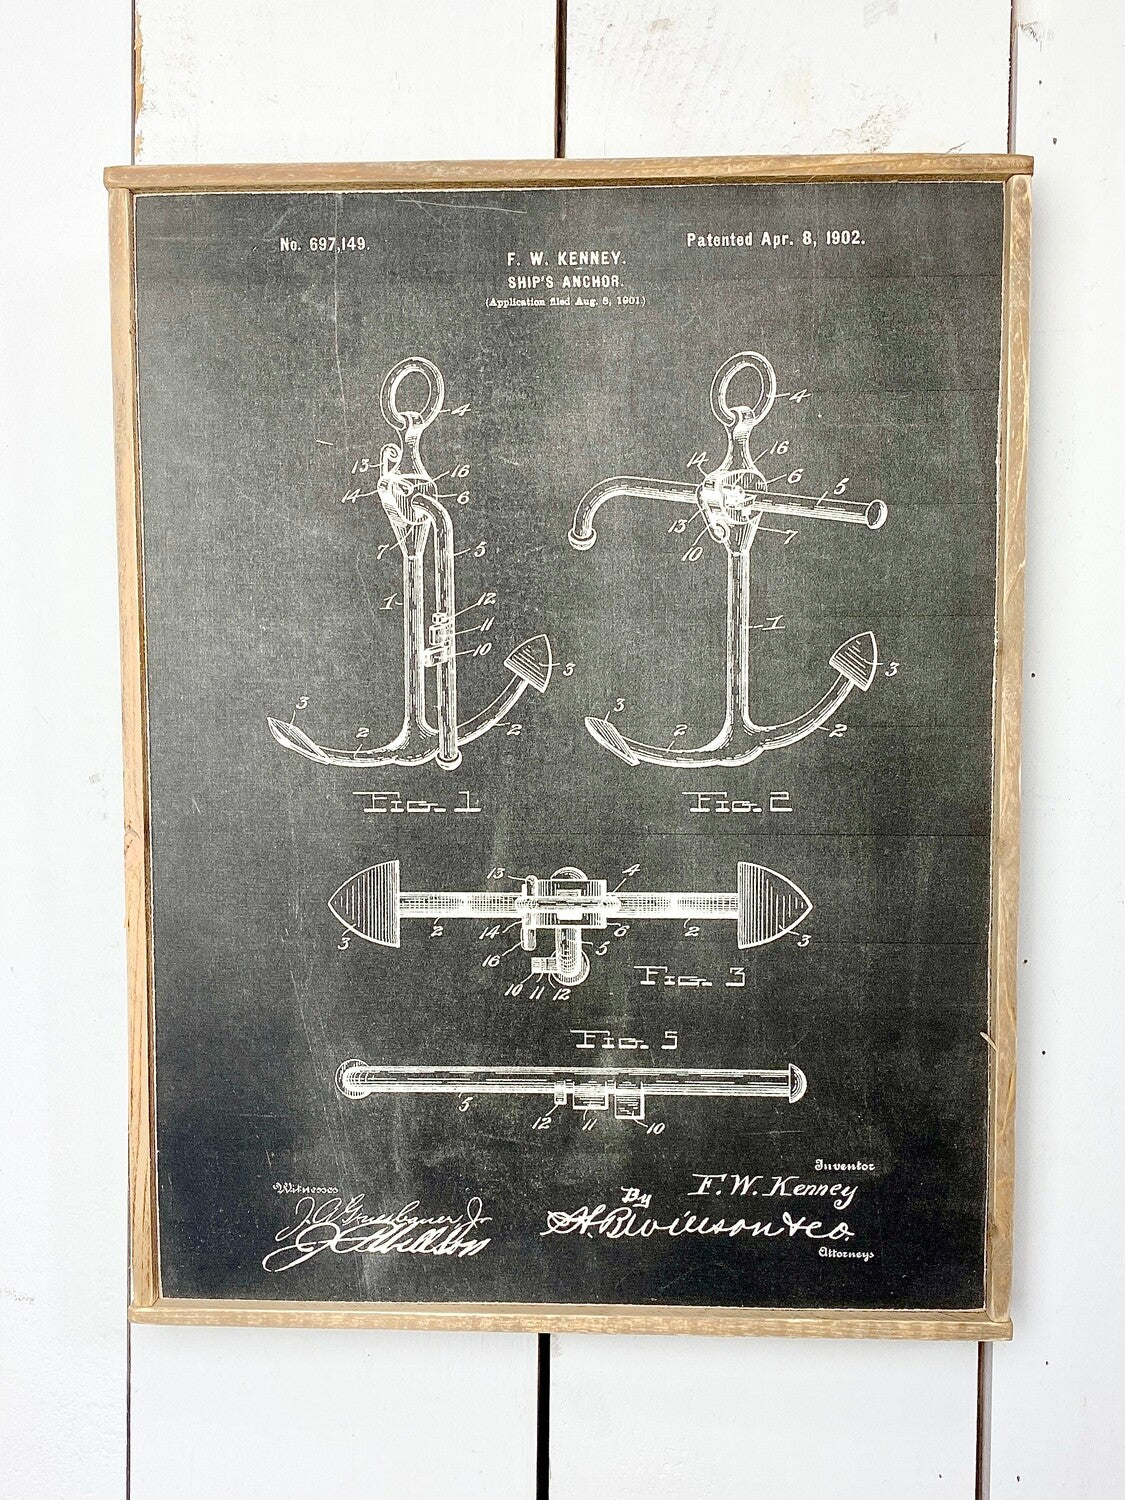 No. 697,149.
Patented Apr. 8, 1902.
F. W. KENNEY.
SHIP'S ANCHOR.
(Application filed Aug. 8, 1901.)
4
13
16
14
6
7
5
1
12
11
10
3
3
2
2
Fig. 1
4
16
14
6
5
13
10
7
1
3
3
2
2
Fig. 2
13
4
3
2
14
6
2
3
16
5
10 11 12
Fig. 3
Fig. 5
5
12
11
10
Witnesses
Inventor
F. W. Kenney
By
Attorneys